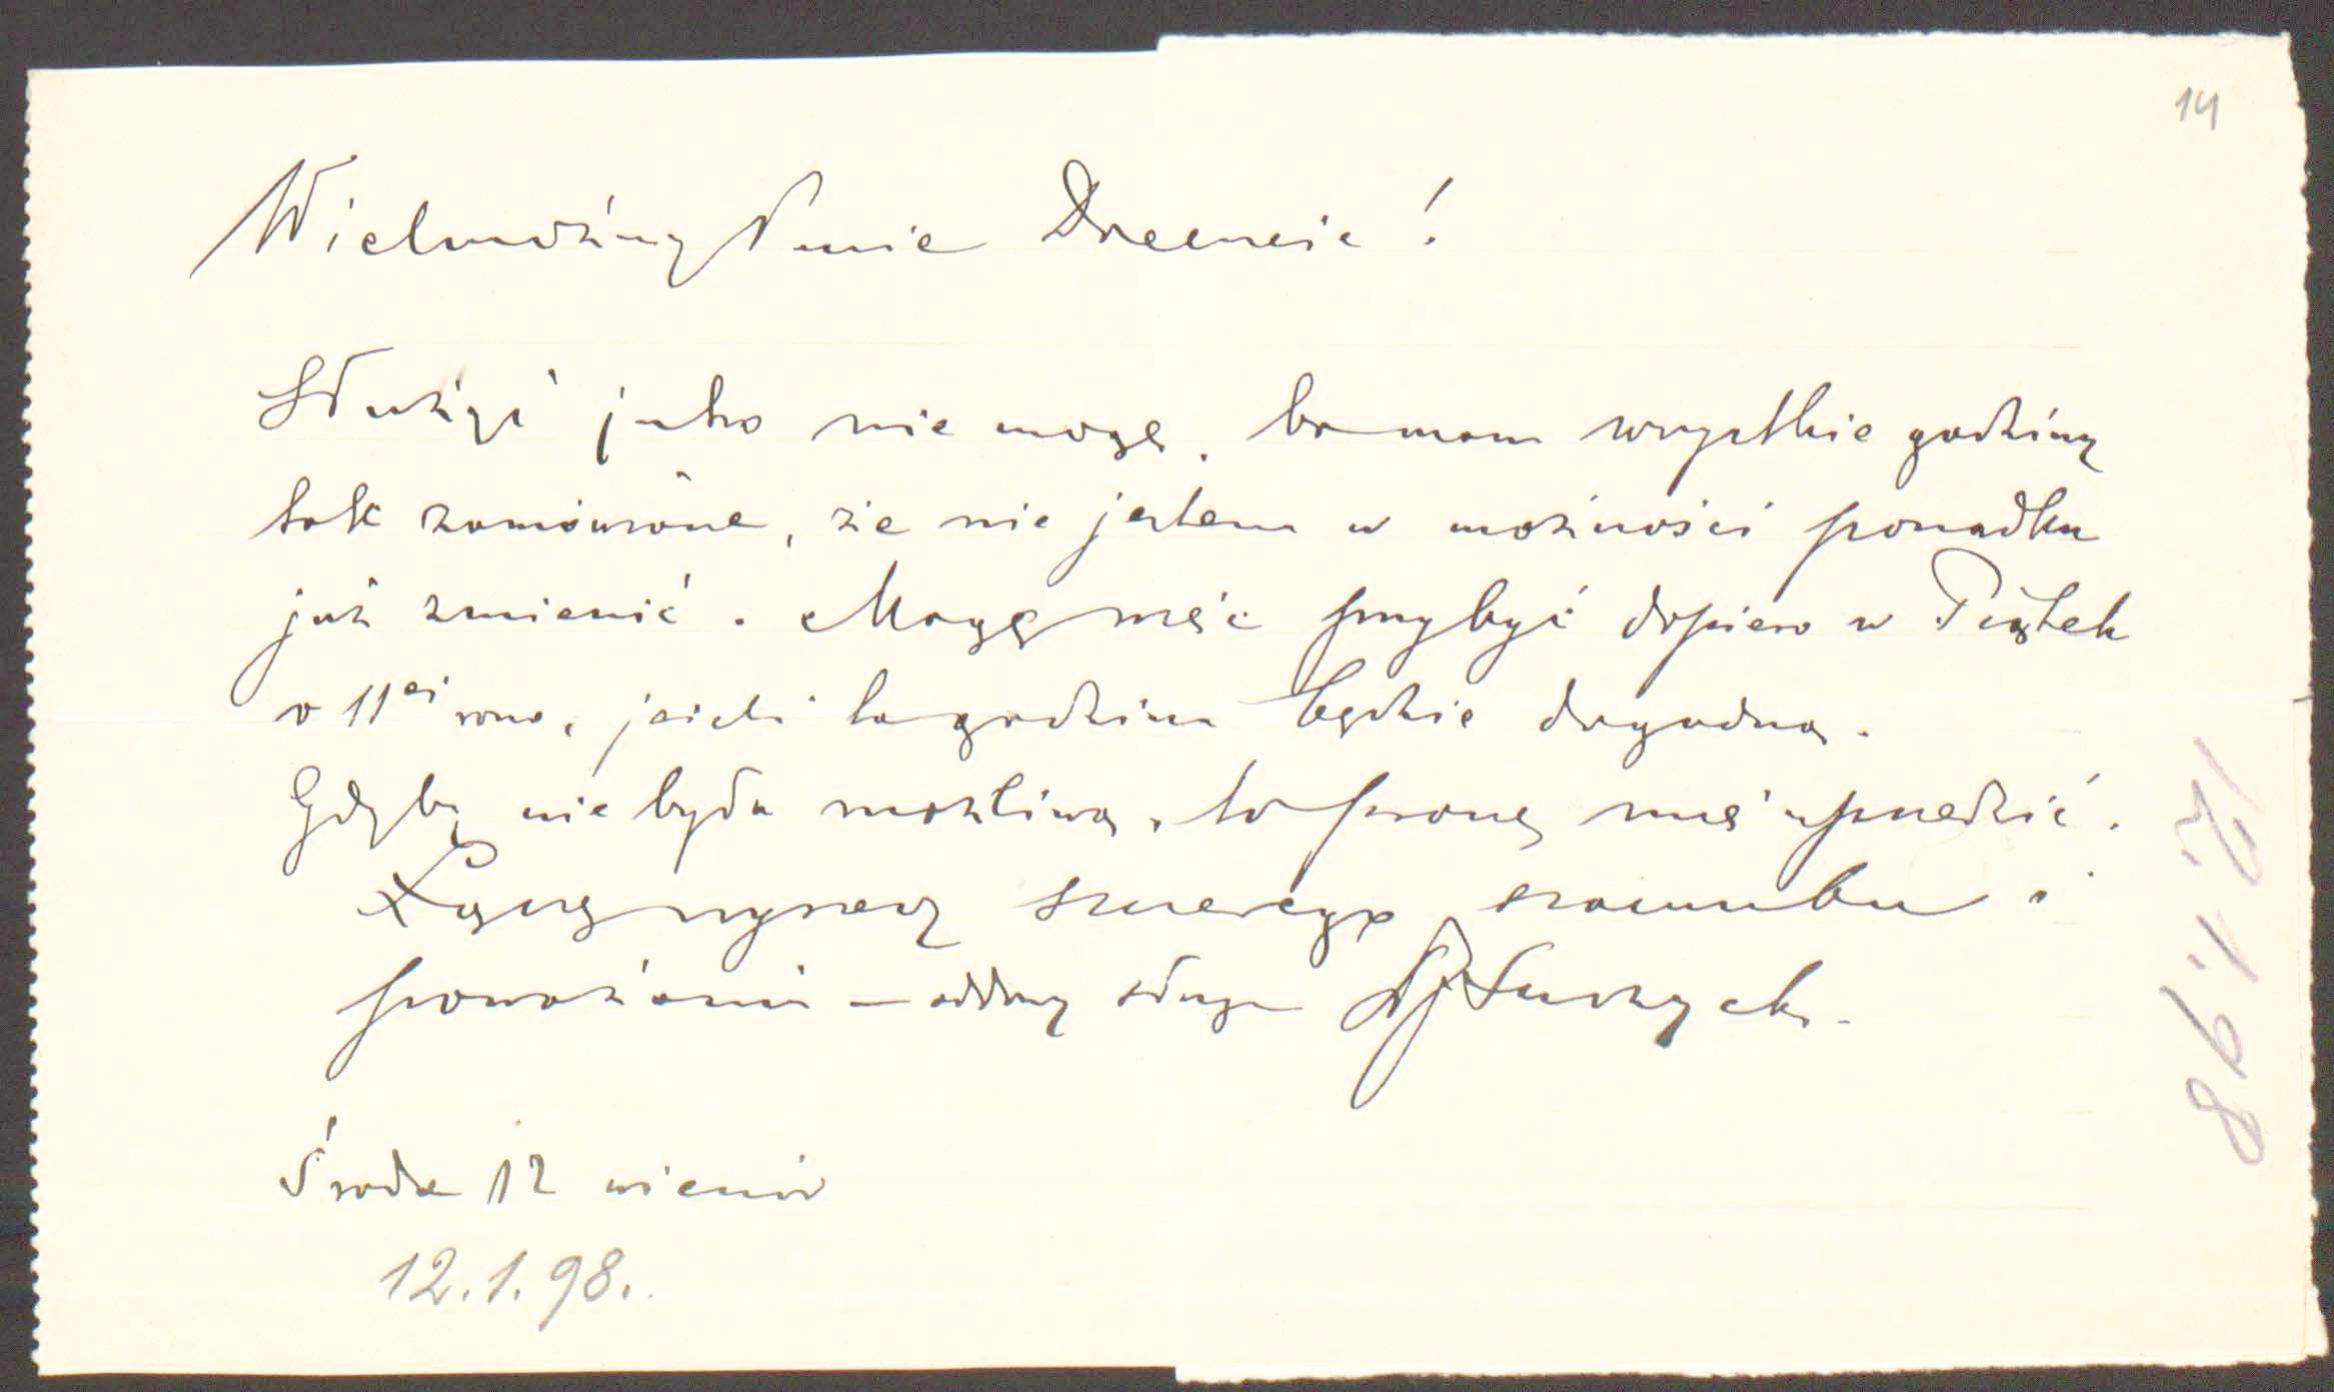 14
Wielmożny Panie Docencie!
Służyć jutro nie mogę, bo mam wszystkie godziny
tak zamówione, że nie jestem w możności porządku
już zmienić. Mogę więc przybyć dopiero w Piątek
o 11ej rano, jeżeli ta godzina będzie dogodną.
Gdyby nie była możliwą, to proszę mię uprzedzić.
Łączę wyrazy szczerego szacunku i
poważania – oddany sługa
Środa 12 wieczór
12.1.98.
12.1.98